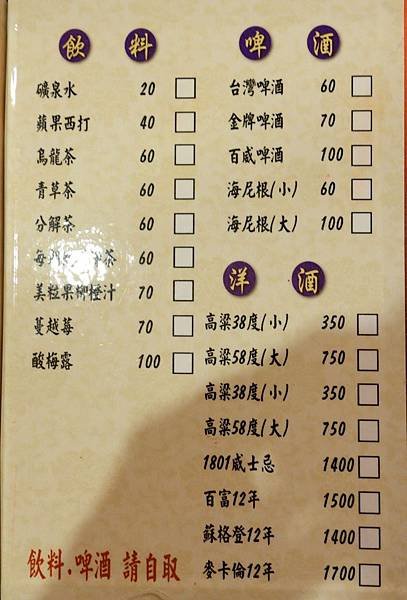 飲料
礦泉水 20
蘋果西打 40
烏龍茶 60
青草茶 60
分解茶 60
每 茶 60
美粒果柳橙汁 70
蔓越莓 70
酸梅露 100
飲料.啤酒 請自取
啤酒
台灣啤酒 60
金牌啤酒 70
百威啤酒 100
海尼根(小) 60
海尼根(大) 100
洋酒
高粱38度(小) 350
高粱58度(大) 750
高粱38度(小) 350
高粱58度(大) 750
1801威士忌 1400
百富12年 1500
蘇格登12年 1400
麥卡倫12年 1700